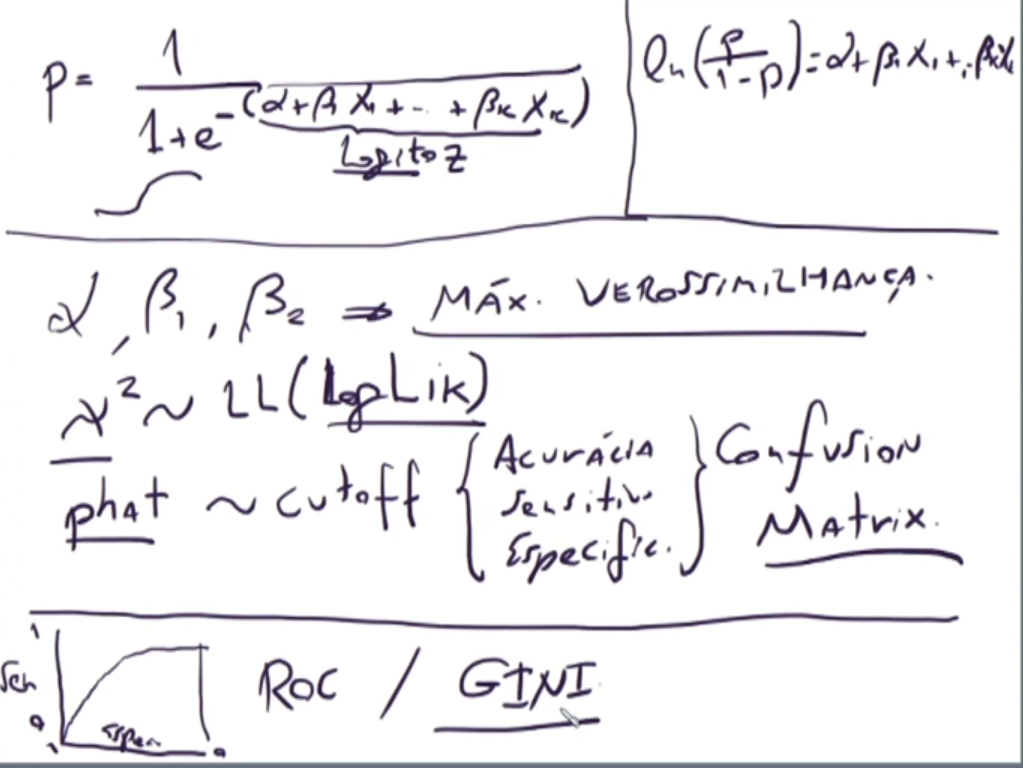 p = 1 / (1 + e^-(α + β1 X1 + ... + βk Xk))
Logito Z
ln(p / (1 - p)) = α + β1 X1 + ... βk Xk
α, β1, β2 ⇒ MÁX. VEROSSIMILHANÇA.
χ² ~ LL (LogLik)
phat ~ cutoff { Acurácia
Sensitiv.
Especific. } Confusion
Matrix.
1
Sen
0
1 Espec. 0
ROC / GINI